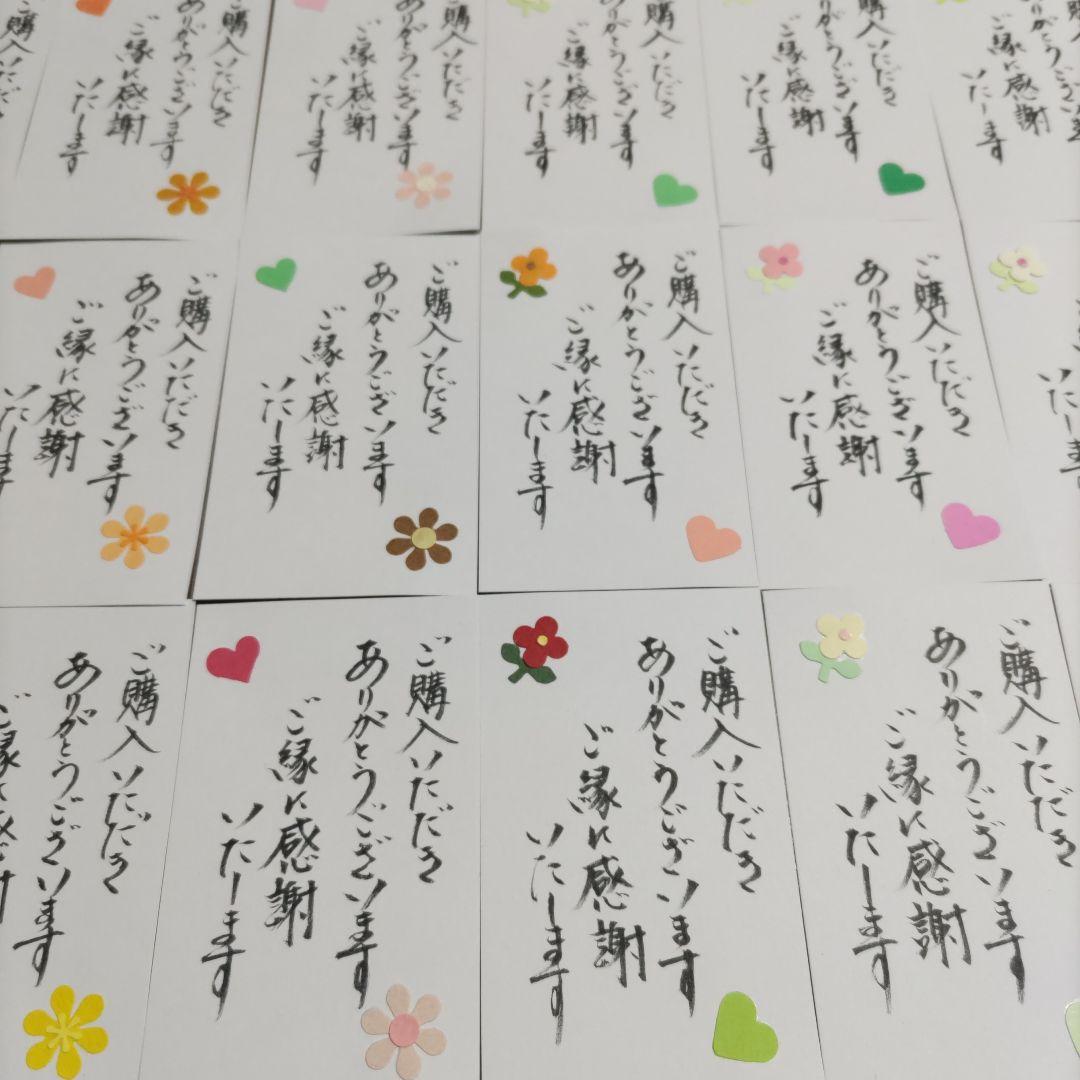 購入いただき
ご購入いただき
ありがとうございます
ご縁に感謝
いたします
ご購入いただき
ありがとうございます
ご縁に感謝
いたします
ご購入いただき
ありがとうございます
ご縁に感謝
いたします
購入いただき
りがとうございます
ご縁に感謝
いたします
ご縁に感謝
いたします
ご購入いただき
ありがとうございます
ご縁に感謝
いたします
ご購入いただき
ありがとうございます
ご縁に感謝
いたします
ご購入いただき
ありがとうございます
ご縁に感謝
いたします
ご購入いただき
ありがとうございます
ご縁に感謝
いたします
いたします
ご購入いただき
ありがとうございます
ご購入いただき
ありがとうございます
ご縁に感謝
いたします
ご購入いただき
ありがとうございます
ご縁に感謝
いたします
ご購入いただき
ありがとうございます
ご縁に感謝
いたします